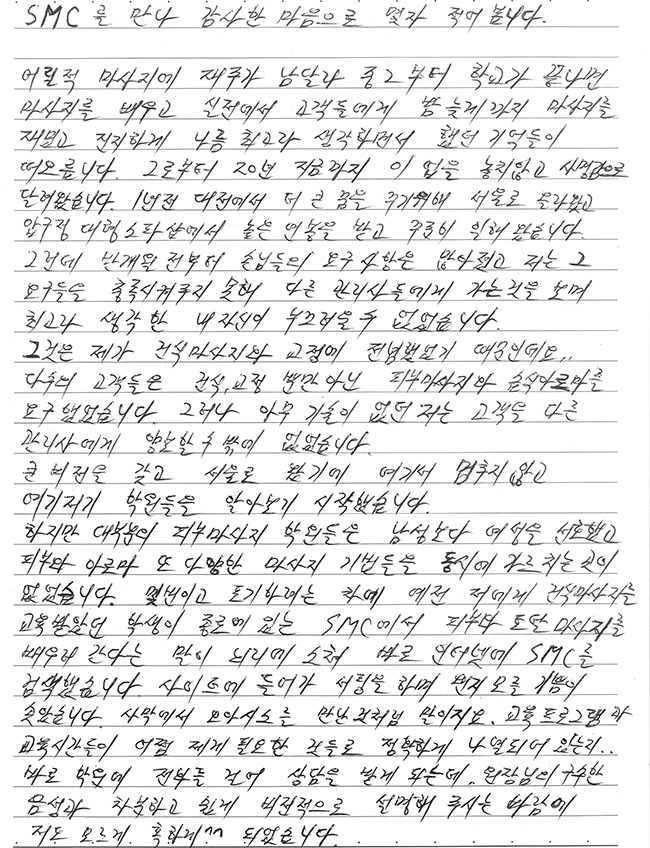 SMC를 만나 감사한 마음으로 몇자 적어 봅니다.
어릴적 마사지에 재주가 남달라 중2부터 학교가 끝나면
마사지를 배우고 실전에서 고객들에게 밤 늦게까지 마사지를
재밌고 진지하게 나름 최고라 생각하면서 했던 기억들이
떠오릅니다. 그로부터 20년 지금까지 이 업을 놓지않고 사명감으로
달려왔습니다. 1년전 대전에서 더 큰 꿈을 꾸기위해 서울로 올라왔고
압구정 대형스파샵에서 높은 연봉을 받고 꾸준히 일해 왔습니다.
그런데 반개월 전부터 손님들의 요구사항은 많아졌고 저는 그
요구들을 충족시켜주지 못해 다른 관리사들에게 가는것을 보며
최고라 생각한 내 자신이 부끄러울 수 없었습니다.
그것은 제가 건식마사지와 교정에 전념했었기 때문인데요..
다수의 고객들은 건식,교정 뿐만 아닌 피부마사지와 습식아로마를
요구했었습니다. 그러나 아무 기술이 없던 저는 고객을 다른
관리사에게 양보할 수 밖에 없었습니다.
큰 비전을 갖고 서울로 왔기에 여기서 멈추지 않고
여기저기 학원들을 알아보기 시작했습니다.
하지만 대부분의 피부마사지 학원들은 남성보다 여성을 선호했고
피부와 아로마 또 다양한 마사지 기법들을 동시에 가르치는 곳이
없었습니다. 몇번이고 포기하려는 차에 예전 저에게 건식마사지를
교육받았던 학생이 종로에 있는 SMC에서 피부와 또다른 마사지를
배우러 간다는 말이 뇌리에 스쳐 바로 인터넷에 SMC를
검색했습니다. 사이트에 들어가 서핑을 하며 뭔지 모를 기쁨이
솟았습니다. 사막에서 오아시스를 만난것처럼 말이지요. 교육프로그램과
교육시간들이 어쩜 제게 필요한 것들로 정확하게 나열되어 있는지..
바로 학원에 전화를 걸어 상담을 받게 되는데. 원장님의 구수한
음성과 차분하고 쉽게 비전적으로 설명해 주시는 바람에
저도 모르게. 혹하게^^ 되었습니다.